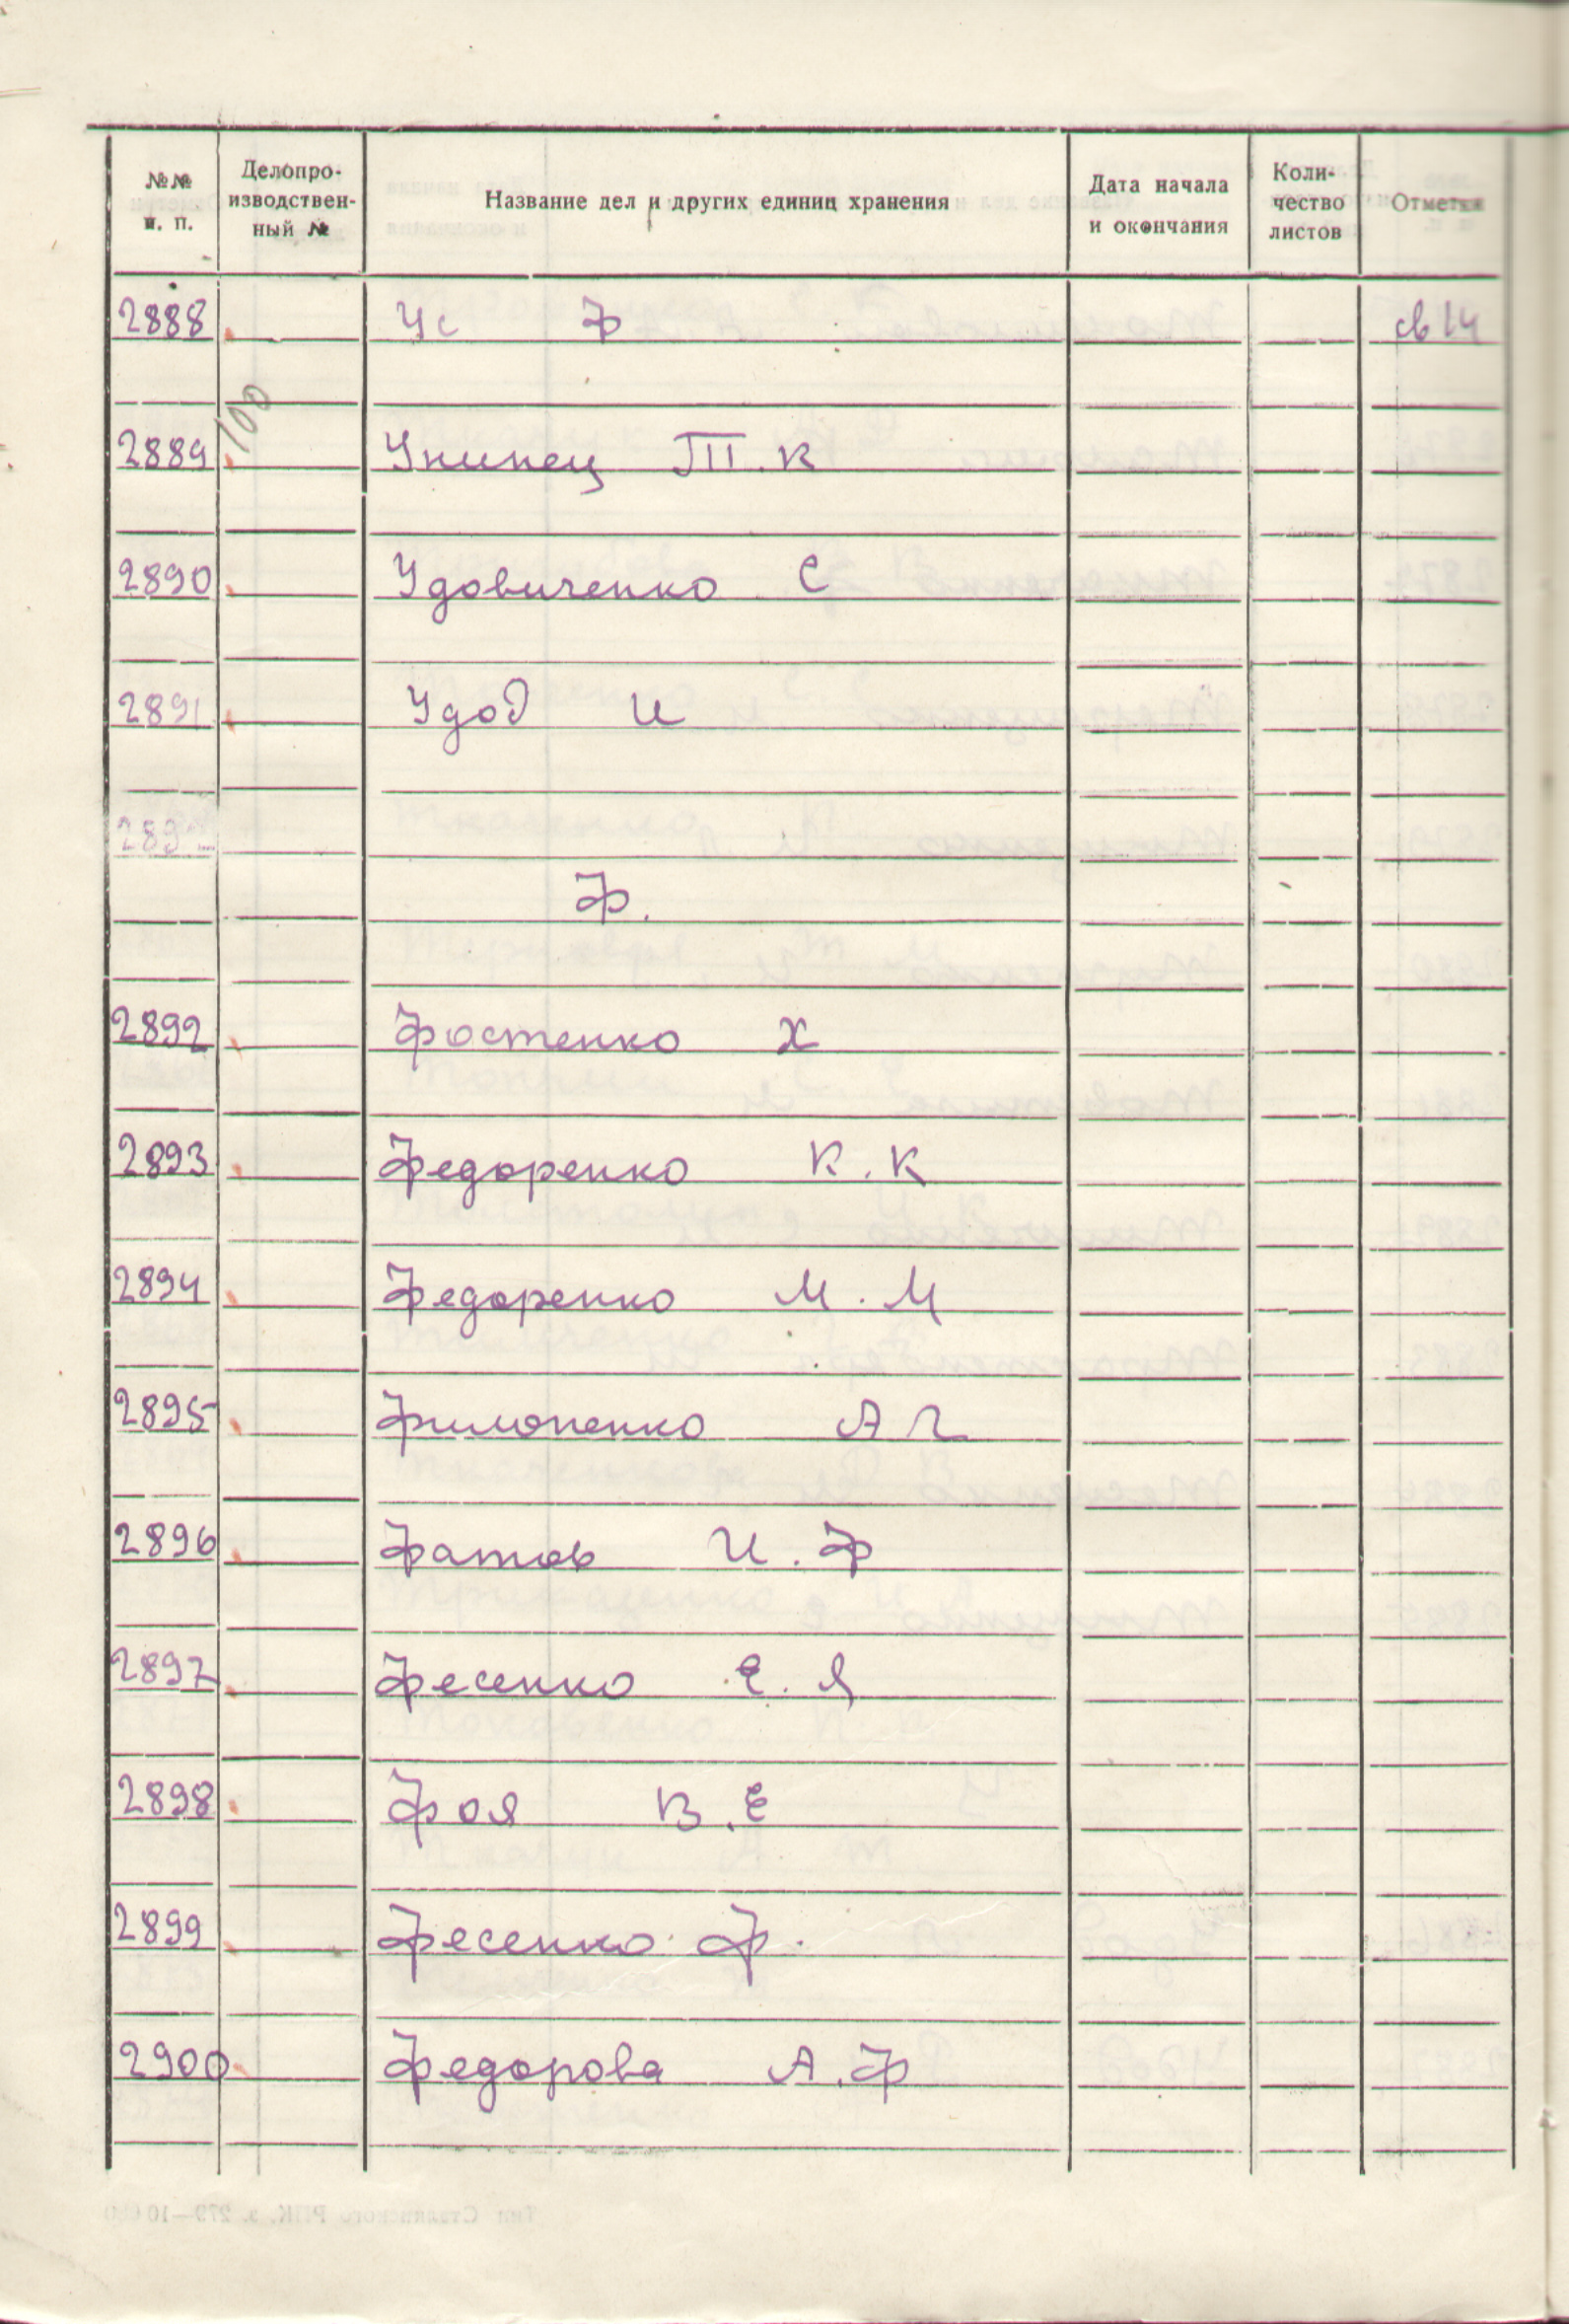 №№ п. п. Делопроизводственный № Название дел и других единиц хранения Дата начала и окончания Количество листов Отметки
2888 Ус Ф св 14
100
2889 Уникец П. К
2890 Удовиченко С
2891 Удод И
2892
Ф.
2892 Фостенко Х
2893 Федоренко К. К
2894 Федоренко М. М
2895 Филоненко А Г
2896 Фатов И. Ф
2897 Фесенко Е. Я
2898 Фоя В. Е
2899 Фесенко Ф.
2900 Федорова А. Ф